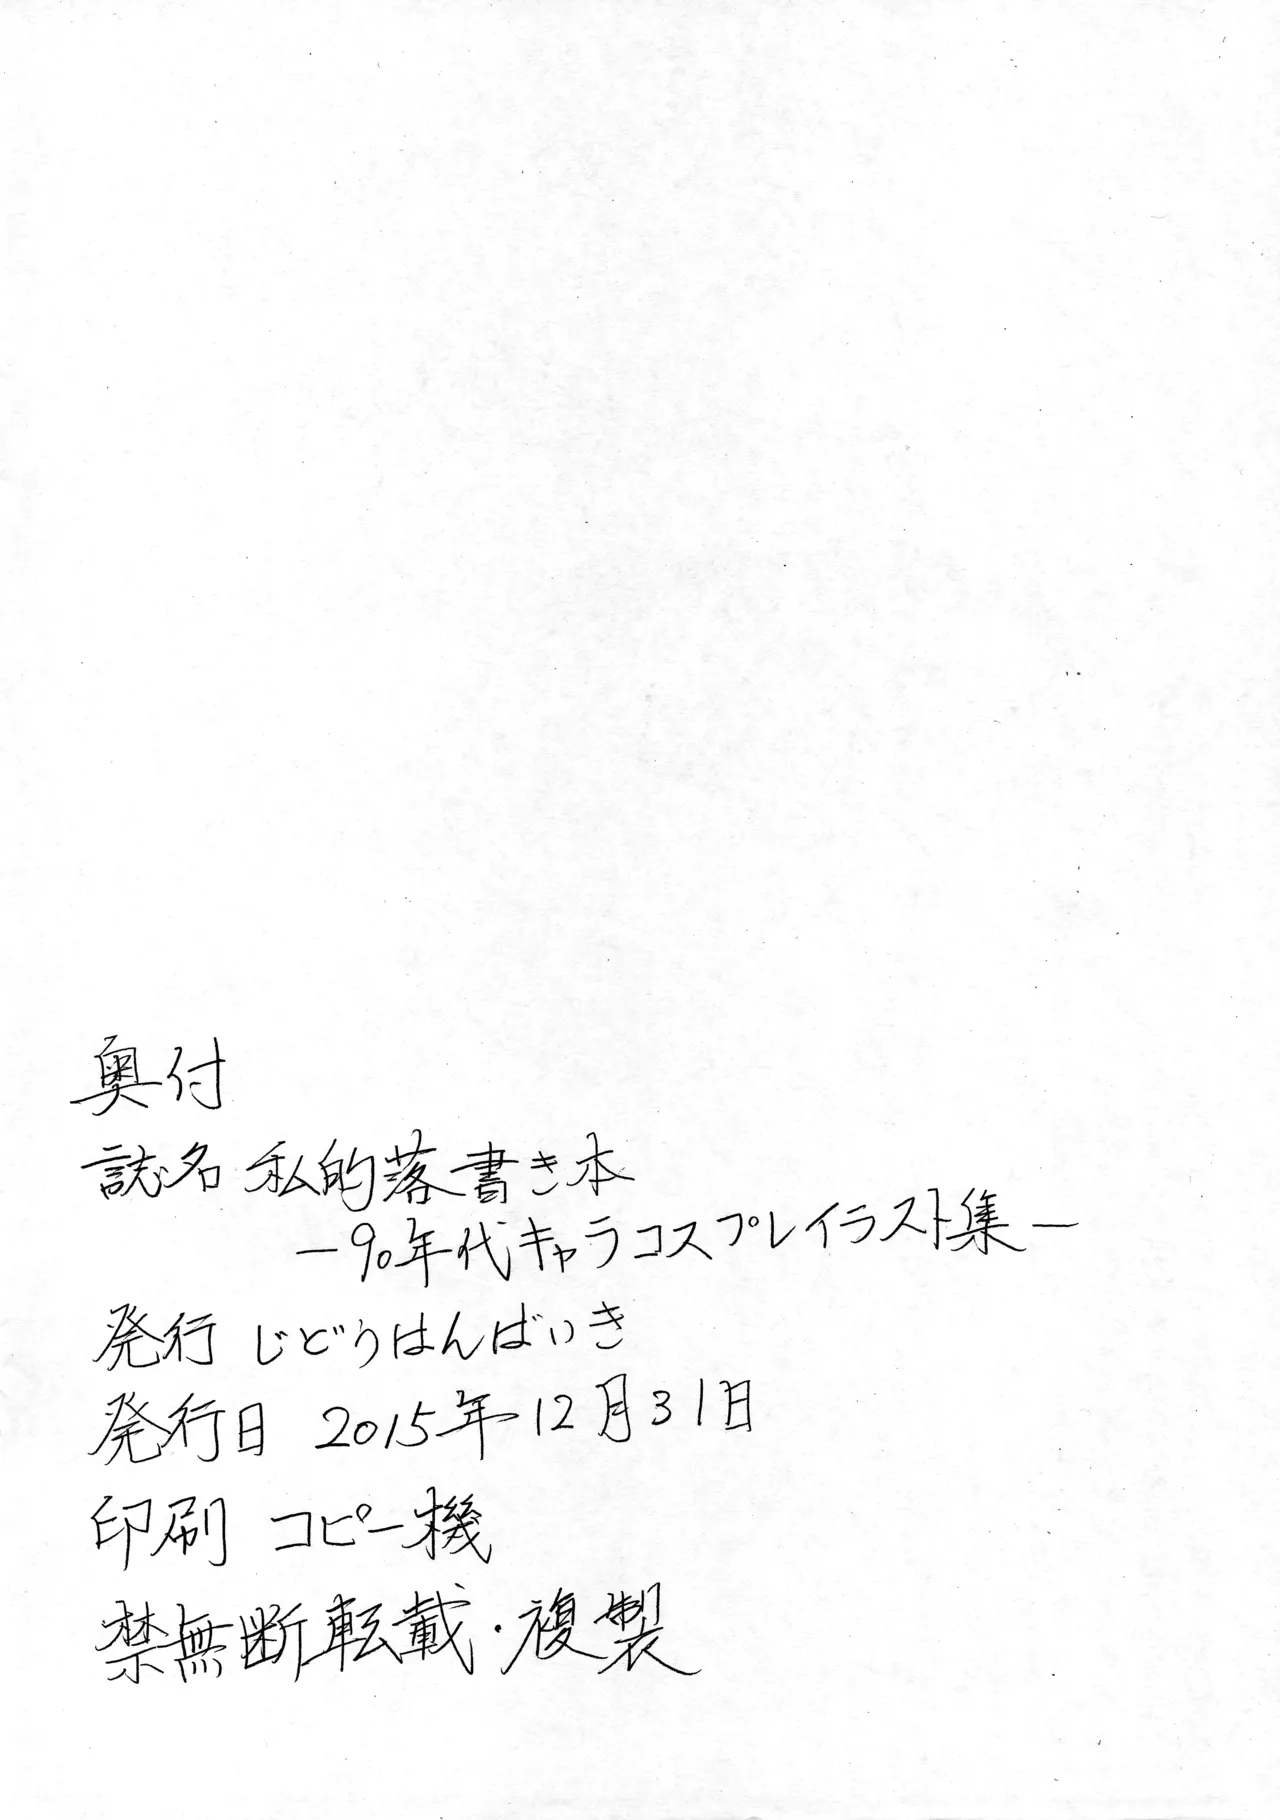 奥付
誌名 私的落書き本
－90年代キャラコスプレイラスト集－
発行 じどうはんばいき
発行日 2015年12月31日
印刷 コピー機
禁無断転載・複製